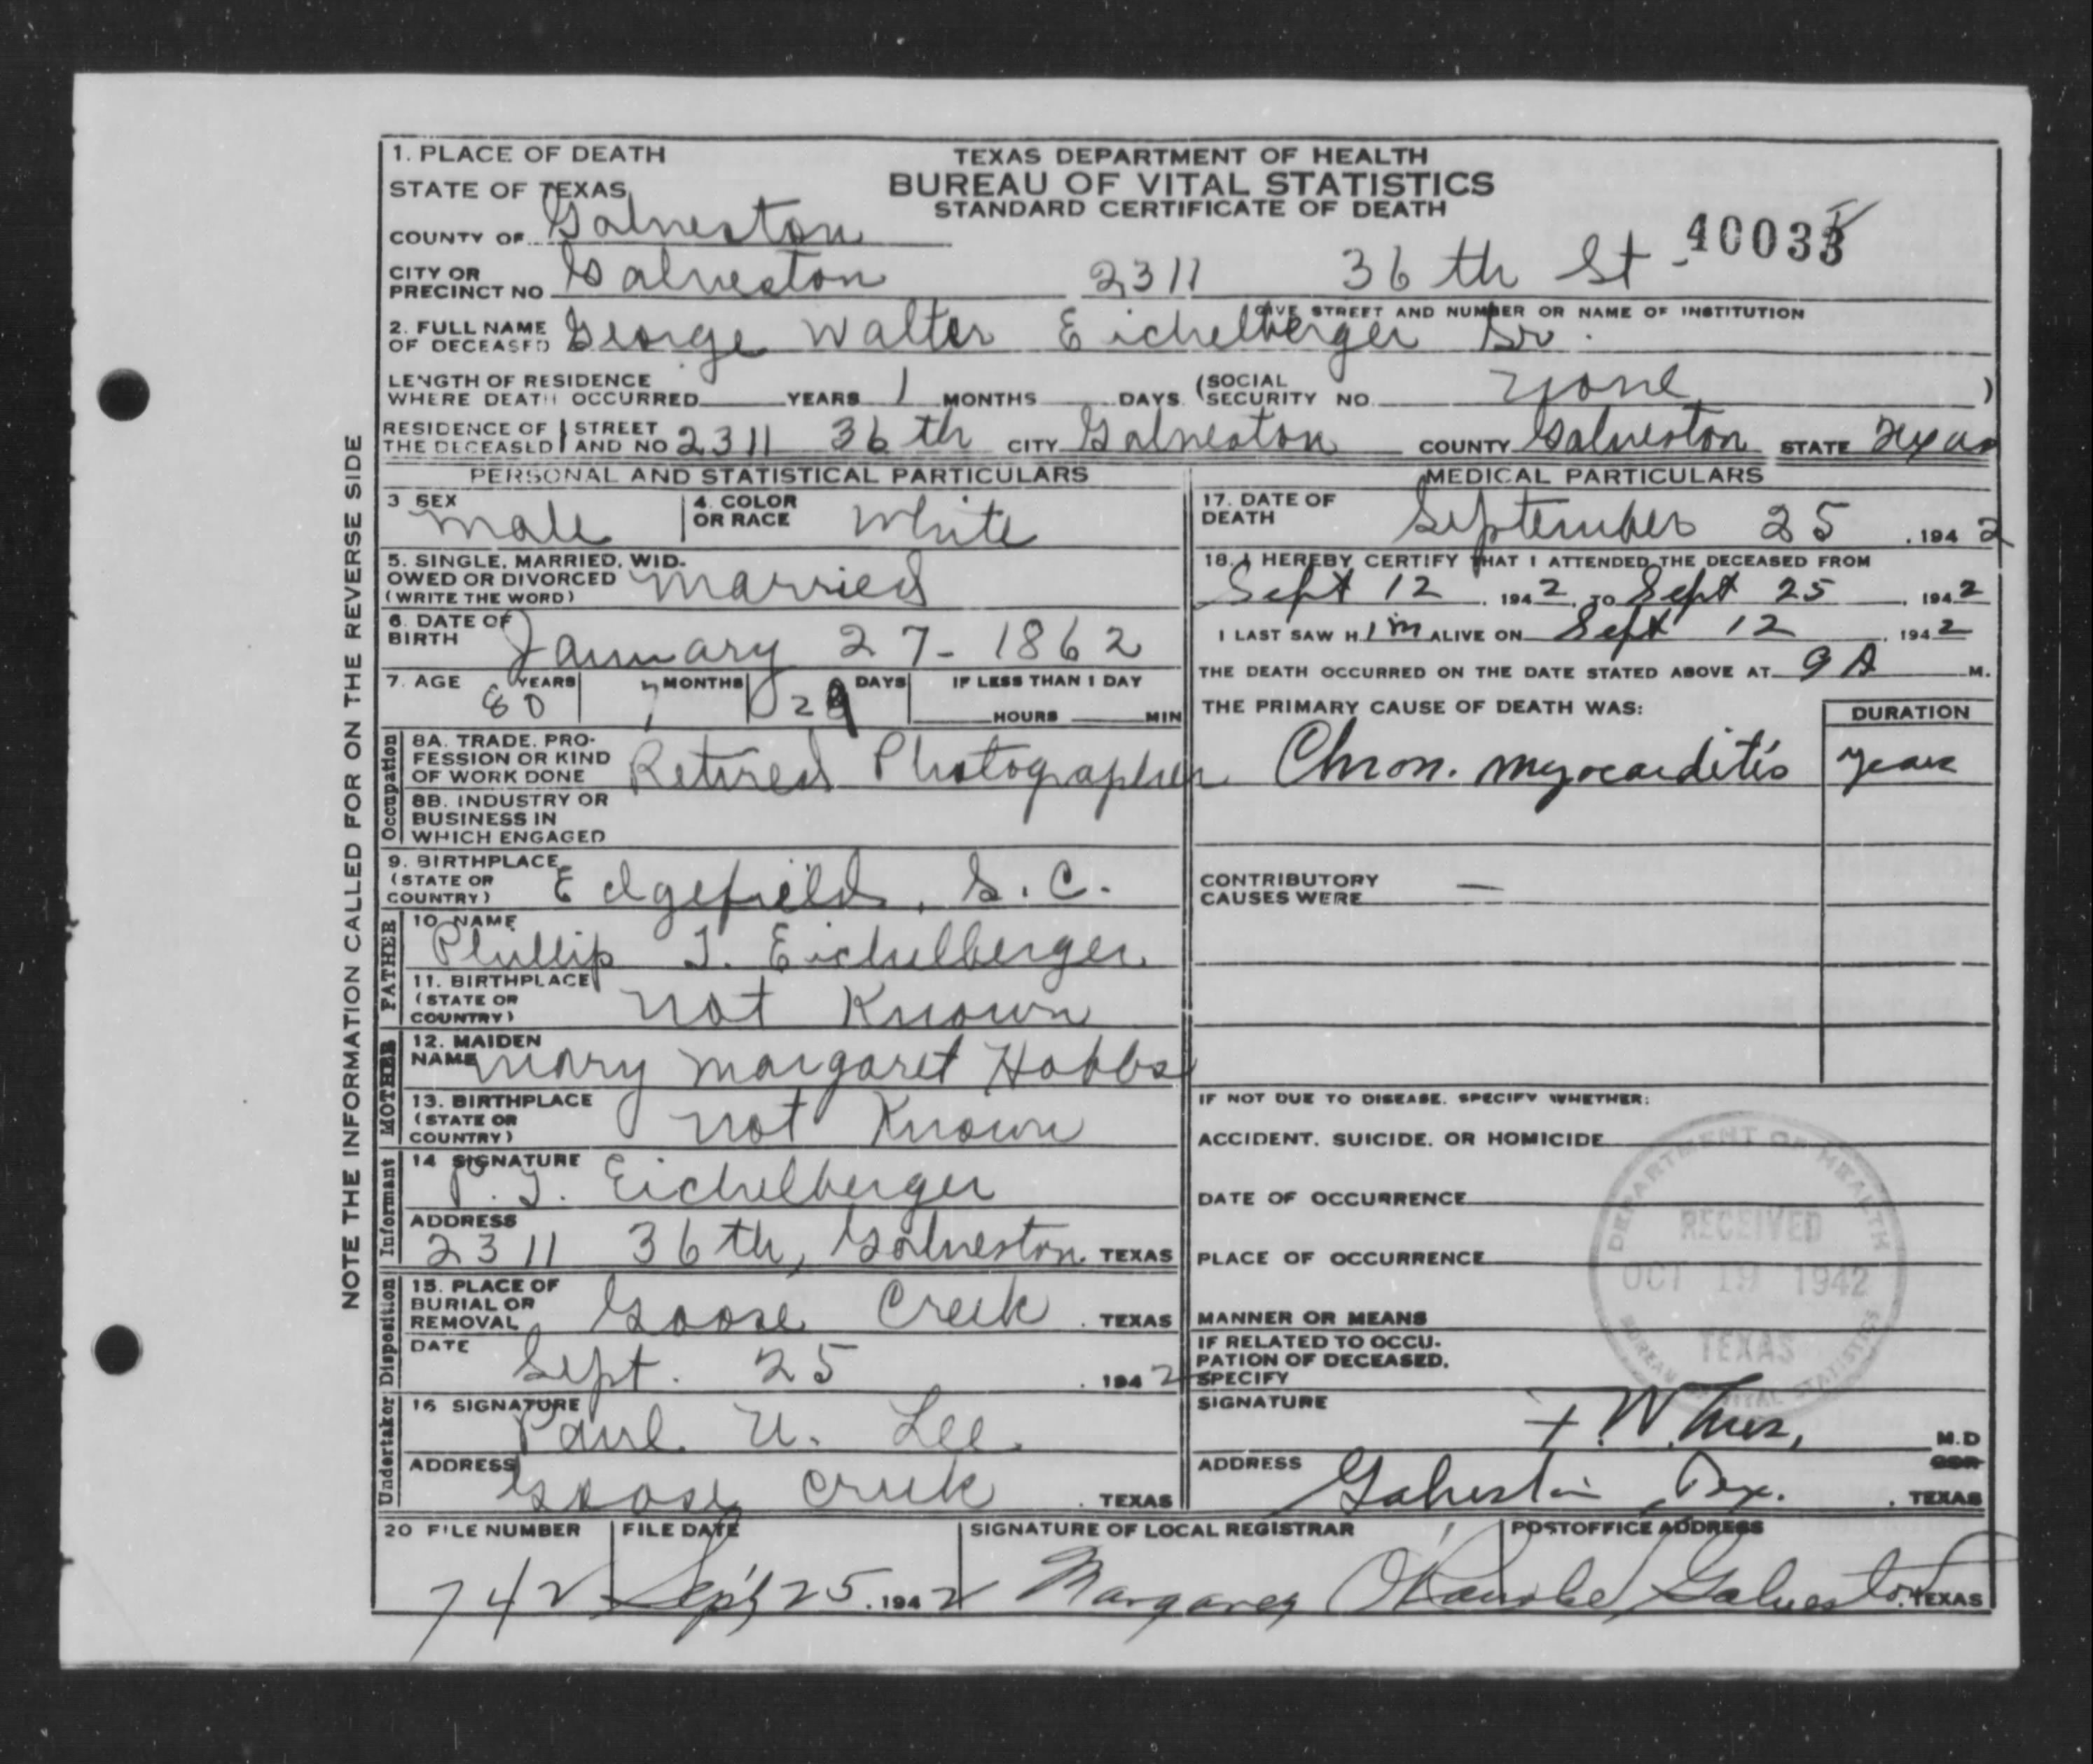 1. PLACE OF DEATH
TEXAS DEPARTMENT OF HEALTH
BUREAU OF VITAL STATISTICS
STANDARD CERTIFICATE OF DEATH
STATE OF TEXAS
COUNTY OF Galveston
CITY OR PRECINCT NO Galveston 2311 36th St
GIVE STREET AND NUMBER OR NAME OF INSTITUTION
2. FULL NAME OF DECEASED George Walter Eichelberger Sr.
LENGTH OF RESIDENCE WHERE DEATH OCCURRED YEARS 1 MONTHS DAYS (SOCIAL SECURITY NO. None)
RESIDENCE OF THE DECEASED STREET AND NO 2311 36th CITY Galveston COUNTY Galveston STATE Texas
NOTE THE INFORMATION CALLED FOR ON THE REVERSE SIDE
PERSONAL AND STATISTICAL PARTICULARS
3 SEX Male
4. COLOR OR RACE White
5. SINGLE, MARRIED, WIDOWED OR DIVORCED (WRITE THE WORD) Married
6. DATE OF BIRTH January 27-1862
7. AGE YEARS 80 MONTHS 7 DAYS IF LESS THAN 1 DAY HOURS MIN
Occupation
8A. TRADE, PROFESSION OR KIND OF WORK DONE Retired Photographer
8B. INDUSTRY OR BUSINESS IN WHICH ENGAGED
9. BIRTHPLACE (STATE OR COUNTRY) Edgefield, S.C.
FATHER
10. NAME Phillip J. Eichelberger
11. BIRTHPLACE (STATE OR COUNTRY) Not Known
MOTHER
12. MAIDEN NAME Mary Margaret Hobbs
13. BIRTHPLACE (STATE OR COUNTRY) Not Known
Informant
14 SIGNATURE P. J. Eichelberger
ADDRESS 2311 36th, Galveston TEXAS
Disposition
15. PLACE OF BURIAL OR REMOVAL Goose Creek, TEXAS
DATE Sept. 25, 1942
Undertaker
16 SIGNATURE Paul U. Lee
ADDRESS Goose Creek, TEXAS
MEDICAL PARTICULARS
17. DATE OF DEATH September 25, 1942
18. I HEREBY CERTIFY THAT I ATTENDED THE DECEASED FROM
Sept 12, 1942, TO Sept 25, 1942
I LAST SAW HIM ALIVE ON Sept 12, 1942
THE DEATH OCCURRED ON THE DATE STATED ABOVE AT 9 A M.
THE PRIMARY CAUSE OF DEATH WAS: DURATION
Chron. myocarditis years
CONTRIBUTORY CAUSES WERE —
IF NOT DUE TO DISEASE, SPECIFY WHETHER:
ACCIDENT, SUICIDE, OR HOMICIDE
DATE OF OCCURRENCE
PLACE OF OCCURRENCE
MANNER OR MEANS
IF RELATED TO OCCUPATION OF DECEASED, SPECIFY
DEPARTMENT OF HEALTH
RECEIVED
OCT 19 1942
TEXAS
BUREAU OF VITAL STATISTICS
SIGNATURE M.D
ADDRESS Galveston, Tex., TEXAS
20 FILE NUMBER 742
FILE DATE Sept 25, 1942
SIGNATURE OF LOCAL REGISTRAR Margaret
POSTOFFICE ADDRESS Galveston, TEXAS